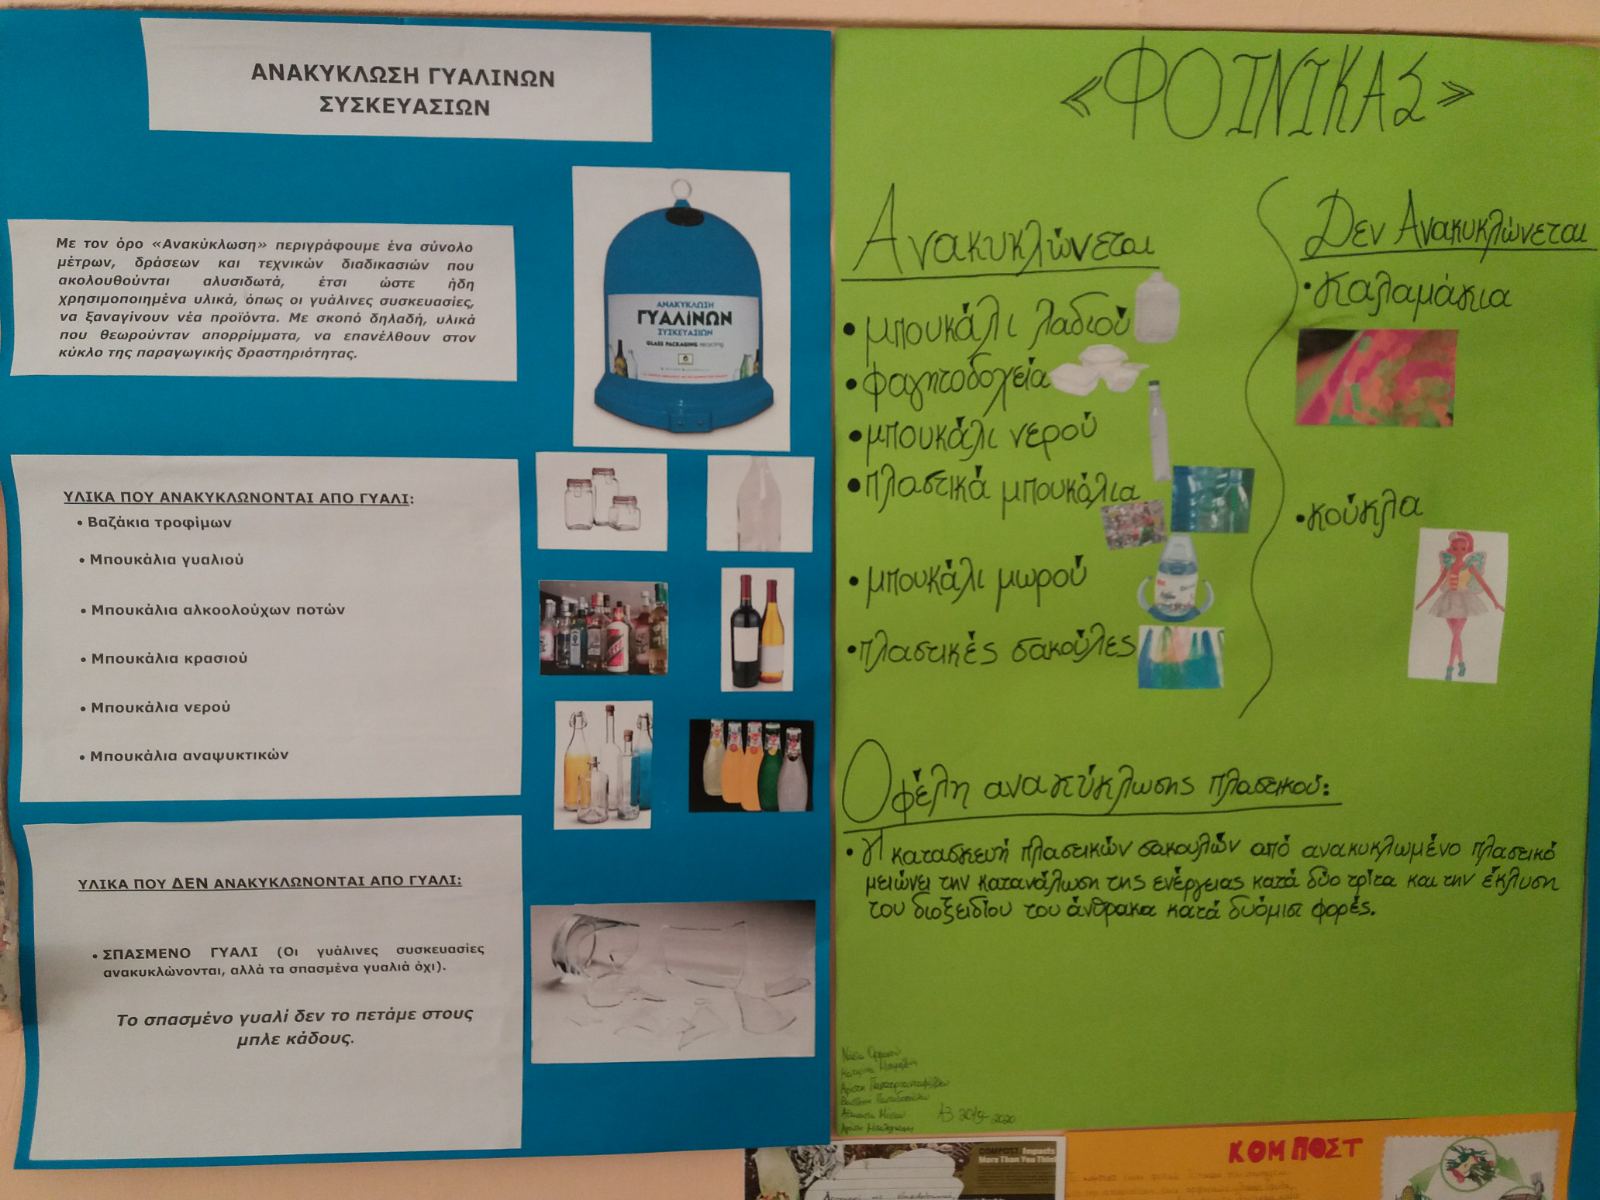 ΑΝΑΚΥΚΛΩΣΗ ΓΥΑΛΙΝΩΝ
ΣΥΣΚΕΥΑΣΙΩΝ
Με τον όρο «Ανακύκλωση» περιγράφουμε ένα σύνολο
μέτρων, δράσεων και τεχνικών διαδικασιών που
ακολουθούνται αλυσιδωτά, έτσι ώστε ήδη
χρησιμοποιημένα υλικά, όπως οι γυάλινες συσκευασίες,
να ξαναγίνουν νέα προϊόντα. Με σκοπό δηλαδή, υλικά
που θεωρούνταν απορρίμματα, να επανέλθουν στον
κύκλο της παραγωγικής δραστηριότητας.
ΑΝΑΚΥΚΛΩΣΗ
ΓΥΑΛΙΝΩΝ
ΣΥΣΚΕΥΑΣΙΩΝ
GLASS PACKAGING recycling
ΥΛΙΚΑ ΠΟΥ ΑΝΑΚΥΚΛΩΝΟΝΤΑΙ ΑΠΟ ΓΥΑΛΙ:
• Βαζάκια τροφίμων
• Μπουκάλια γυαλιού
• Μπουκάλια αλκοολούχων ποτών
• Μπουκάλια κρασιού
• Μπουκάλια νερού
• Μπουκάλια αναψυκτικών
ΥΛΙΚΑ ΠΟΥ ΔΕΝ ΑΝΑΚΥΚΛΩΝΟΝΤΑΙ ΑΠΟ ΓΥΑΛΙ:
• ΣΠΑΣΜΕΝΟ ΓΥΑΛΙ (Οι γυάλινες συσκευασίες
ανακυκλώνονται, αλλά τα σπασμένα γυαλιά όχι).
Το σπασμένο γυαλί δεν το πετάμε στους
μπλε κάδους.
«ΦΟΙΝΙΚΑΣ»
Ανακυκλώνεται
• μπουκάλι λαδιού
• φαγητοδοχεία
• μπουκάλι νερού
• πλαστικά μπουκάλια
• μπουκάλι μωρού
• πλαστικές σακούλες
Δεν Ανακυκλώνεται
• καλαμάκια
• κούκλα
Οφέλη ανακύκλωσης πλαστικού:
• Η κατασκευή πλαστικών σακουλών από ανακυκλωμένο πλαστικό
μειώνει την κατανάλωση της ενέργειας κατά δύο τρίτα και την έκλυση
του διοξειδίου του άνθρακα κατά δυόμισι φορές.
2019-2020
COMPOST Impacts
More Than You Think
ΚΟΜΠΟΣΤ